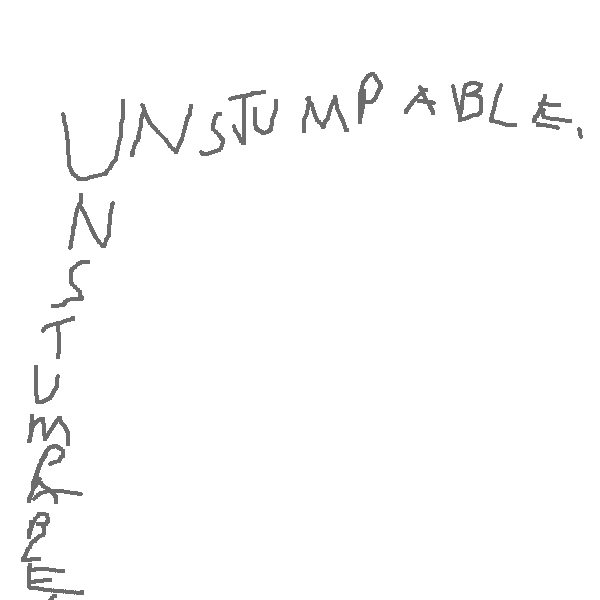 UNSTUMPABLE.
N
S
T
U
M
P
A
B
L
E